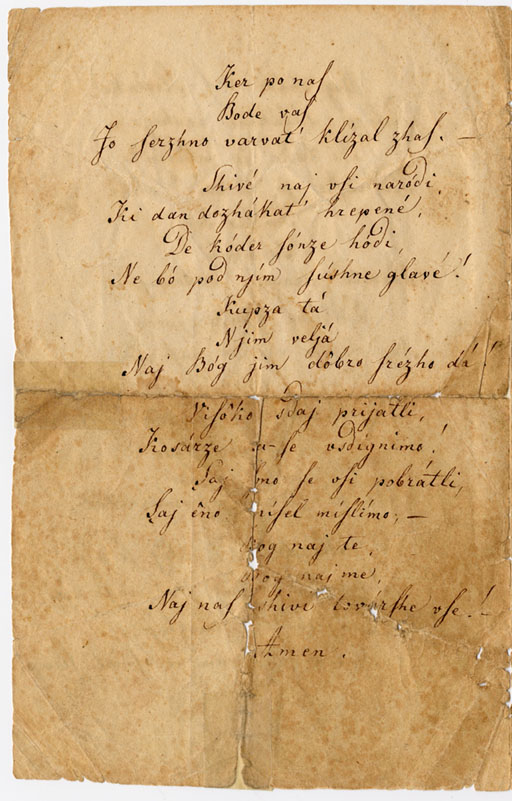 Ker po naſ
Bode vaſ
Jo ſerzhno varvat' klízal zhaſ. —
Shivé naj vſi naródi,
Ki dan dozhákat' hrepené,
De kóder ſónze hódi,
Ne bó pod njím ſúshne glavé!
Kupza tá
Njim veljá
Naj Bóg jim dôbro ſrézho dá!
Viſôko sdaj prijatli,
Kosárze ſe vsdignimo!
Saj ſmo ſe vſi pobrátli,
Saj êno míſel míſlimo, —
Bog naj te,
Bog naj me,
Naj naſ shivi továrſhe vſe!
Amen.